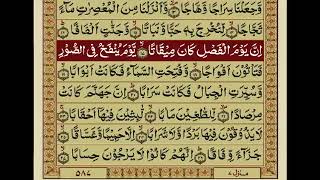 وَّجَعَلْنَا سِرَاجًا وَّهَّاجًا ۙ﴿۱۳﴾ وَّاَنْزَلْنَا مِنَ الْمُعْصِرٰتِ مَآءً
ثَجَّاجًا ۙ﴿۱۴﴾ لِّنُخْرِجَ بِهٖ حَبًّا وَّنَبَاتًا ۙ﴿۱۵﴾ وَّجَنّٰتٍ اَلْفَافًا ؕ﴿۱۶﴾
اِنَّ يَوْمَ الْفَصْلِ كَانَ مِيْقَاتًا ۙ﴿۱۷﴾ يَّوْمَ يُنْفَخُ فِى الصُّوْرِ
فَتَاْتُوْنَ اَفْوَاجًا ۙ﴿۱۸﴾ وَّفُتِحَتِ السَّمَآءُ فَكَانَتْ اَبْوَابًا ۙ﴿۱۹﴾
وَّسُيِّرَتِ الْجِبَالُ فَكَانَتْ سَرَابًا ؕ﴿۲۰﴾ اِنَّ جَهَنَّمَ كَانَتْ
مِرْصَادًا ۙ﴿۲۱﴾ لِّلطَّاغِيْنَ مَاٰبًا ۙ﴿۲۲﴾ لّٰبِثِيْنَ فِيْهَاۤ اَحْقَابًا ۚ﴿۲۳﴾
لَا يَذُوْقُوْنَ فِيْهَا بَرْدًا وَّلَا شَرَابًا ۙ﴿۲۴﴾ اِلَّا حَمِيْمًا وَّغَسَّاقًا ۙ﴿۲۵﴾
جَزَآءً وِّفَاقًا ؕ﴿۲۶﴾ اِنَّهُمْ كَانُوْا لَا يَرْجُوْنَ حِسَابًا ۙ﴿۲۷﴾
منزل ۷
۵۸۷